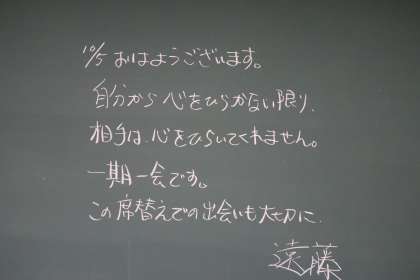 10/5 おはようございます。
自分から心をひらかない限り、
相手は、心をひらいてくれません。
一期一会です。
この席替えでの出会いも大切に
遠藤